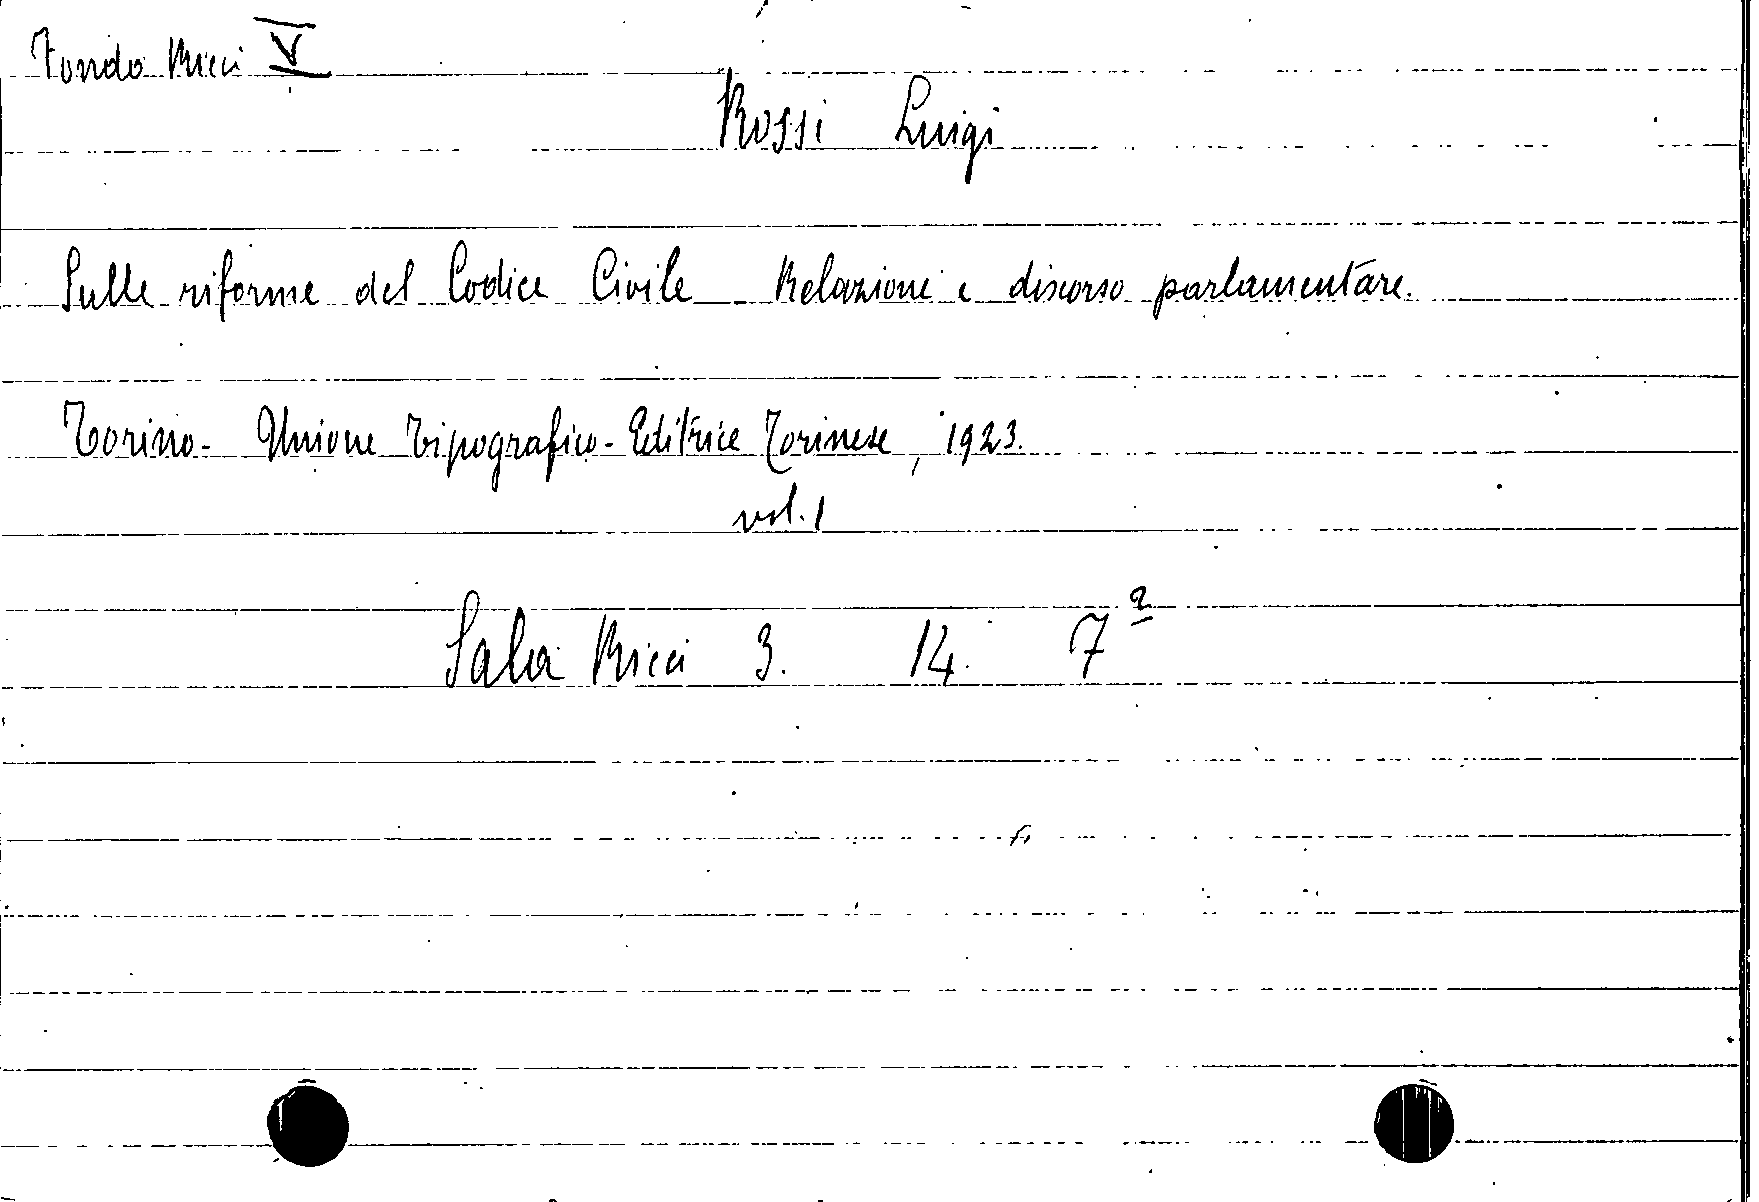 Fondo Ricci V
Rossi Luigi
Sulle riforme del Codice Civile Relazione e discorso parlamentare.
Torino - Unione Tipografico-Editrice Torinese, 1923.
vol. 1
Sala Ricci 3. 14. 7²